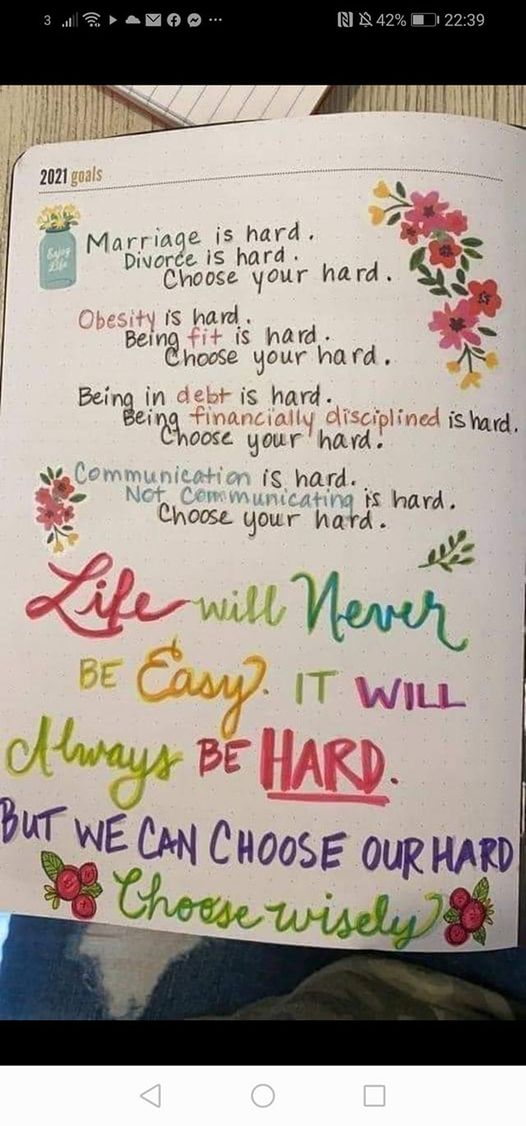 3 42% 22:39
2021 goals
Enjoy Life
Marriage is hard.
Divorce is hard.
Choose your hard.
Obesity is hard.
Being fit is hard.
Choose your hard.
Being in debt is hard.
Being financially disciplined is hard.
Choose your hard!
Communication is hard.
Not Communicating is hard.
Choose your hard.
Life will Never
BE Easy. IT WILL
Always BE HARD.
BUT WE CAN CHOOSE OUR HARD
Choose wisely